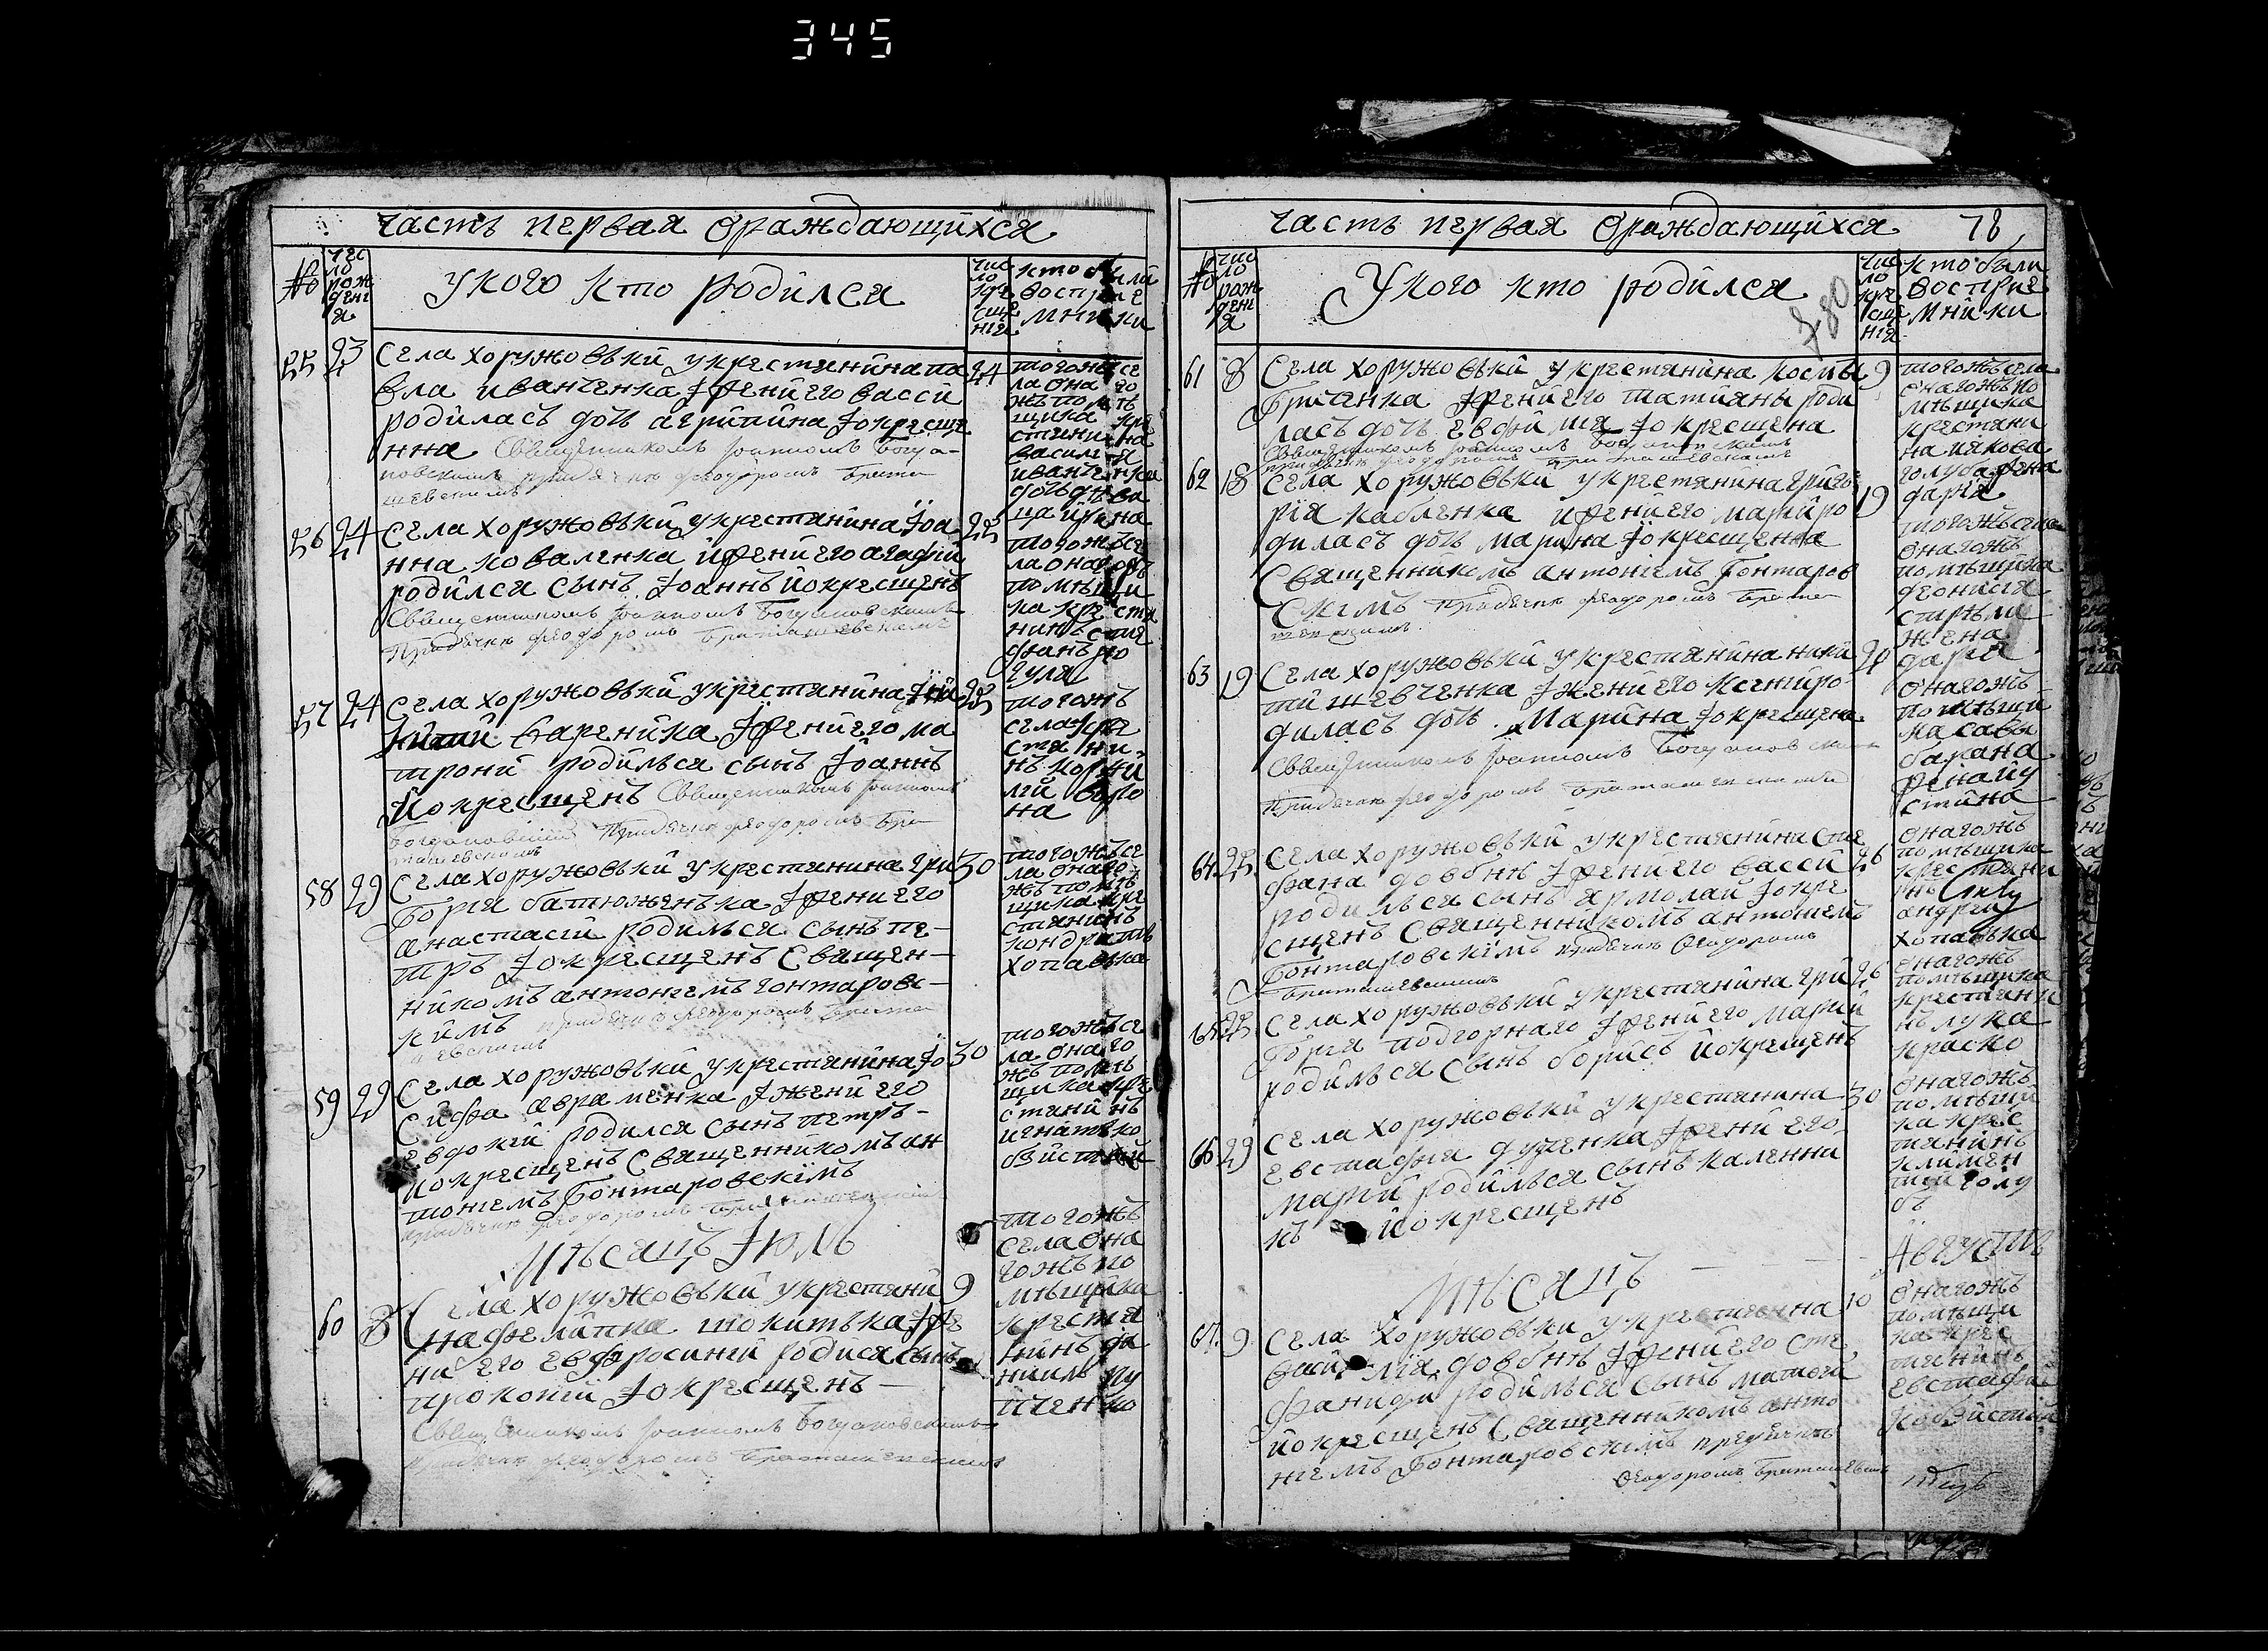 345
часть первая ораждающихся
№
чис
ло
рож
дені
я
укого кто родился
чис
ло
кре
ще
нія
кто были
воспріе
мники
55 23 Села хоружовки укрестянина па
вла иванченка Їжени его васси
родилась дочь агрипина Їокреще
нна Священникомъ Іоанномъ Богда-
новскимъ при дячку феодоромъ Брата
шевскимъ
24 тогожъсе
ла она го
жъ помѣ
щика кре
стянина
васил
иванченка
дочь дѣви
ца ирина
56 24 Села хоружовки укрестянина Їоа
нна коваленка иЖени его агафии
родился сынъ Їоаннъ йокрещенъ
Священникомъ Іоанномъ Богдановскимъ
При дячку феодоромъ Браташевскимъ
25 тогожъсе
ла онагожъ
помѣщи
ка кре стя
нинъ сте
фанъ ро
гуля
57 24 Села хоружовки укрестянина
Вареника Їжени его ма
трони родилься сынъ Їоаннъ
Йокрещенъ Священникомъ Іоанномъ
Богдановскимъ При дячку феодоромъ Бра
ташевскимъ
25 тогожъ
села кре
стя ни
нъ корни
лій воро
на
58 29 Села хоружовки укрестянина гри
горія батюженька Їжени его
анастасіи родилься сынъ пе-
тръ Їокрещенъ Священ-
никомъ антоніемъ гонтаровс-
кимъ при дячку феодоромъ Брата
шевскимъ
30 тогожъсе
ла онаго
жъ помѣ
щика кре
стянинъ
кондратъ
хопавка
59 29 Села хоружовки укрестянина Їо
сифа авраменка Їжени его
евдокіи родился сынъ петръ-
иокрещенъ Священникомъ ан
тоніемъ Гонтаровскімъ
при дячку феодоромъ Браташевскимъ
30 тогожъсе
ла онаго
жъ помѣ
щика кре
стянинъ
игнатъ ко
війстый
Мѣсяцъ Їюль
60 8 Села хоружовки укрестяни
на филипка токитька Їже
ни его евфросинии родися сынъ
прокопій Їокрещенъ
Священникомъ Іоанномъ Богдановскимъ
при дячку феодоромъ Браташевскимъ
9 тогожъ
села она
гожъ по
мѣщика
крестя
нинъ да
ниилъ пу
тченко
часть первая ораждающихся 78
№
чис
ло
рож
дені
я
Укого кто родился
780
чис
ло
кре
ще
нія
кто были
воспріе
мники
61 8 Села хоружовки укрестянина космы
Гриченка Їжени его татияны роди
лась дочь евфимія Їокрещена
Священникомъ Іоанномъ Богдановскимъ
при дячку феодоромъ Браташевскимъ
9 тогожъсела
онагожъпо
мѣщика
крестяни
на иякова
голуба жена
дарія
62 18 Села хоружовки укрестянина григо
рія кабленка иЖени его марии ро
дилась дочь Марина Їокрещенна
Священникомъ антоніемъ Гонтаров
Скімъ При дячку феодоромъ Брата
шевскимъ
19 тогожъсела
онагожъ
помѣщика
діонисія
стрѣли
жена
дарія
63 19 Села хоружовки укрестянина ники
ти шевченка Їжени его ксении ро
дилась дочь Марина Їокрещена
Священникомъ Іоанномъ Богдановским
При дячку феодоромъ Браташевскимъ
20 онагожъ
помѣщи
ка савы
барана
жена іу
стина
64 25 Села хоружовки укрестянина сте
фана довбнѣ Їжени его васси
родилься сынъ ярмолай Їокре
щенъ Священникомъ антоніемъ
Гонтаровскімъ при дячку Феодоромъ
Браташевскимъ
26 онагожъ
помѣщика
крестяни
нъ
андрей
хопавка
65 25 Села хоружовки укрестянина гри
горія подгорнаго Їжени его Марии
родилься сынъ борисъ йокрещенъ
26 онагожъ
помѣщика
крестяни
нъ лука
краско
66 29 Села хоружовки укрестянина
евстафія дуденка Їжени его
марии родилься сынъ каленни
къ йокрещенъ
30 онагожъ
помѣщи
ка крес
тянинъ
климен
тий голу
бъ
Мѣсяцъ Августъ
67. 9 Села хоружовки укрестянина
василія довбнѣ Їжени его сте
фаниди родилься сынъ матфей
йокрещенъ Священникомъ анто
ніемъ Гонтаровскімъ при дячку
Феодоромъ Браташевским
10 онагожъ
помѣщи
ка крес
тянинъ
евстафій
ковійстый